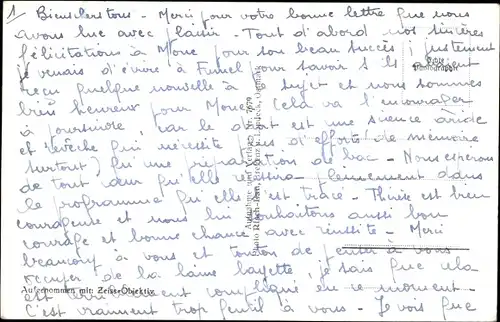 1 Bien chers tous - Merci pour votre bonne lettre que nous
avons lue avec plaisir - Tout d'abord nos sincères
félicitations à Mone pour son beau succès ; justement
je venais d'écrire à Fumel pour savoir s'ils avaient
reçu quelque nouvelle à ce sujet et nous sommes
bien heureux pour Mone. Cela va l'encourager
à poursuivre, car le droit est une science aride
et revêche qui nécessite plus d'efforts de mémoire
surtout) qu'une préparation de bac - Nous espérons
de tout cœur qu'elle réussira pleinement dans
le programme qu'elle s'est tracé - Thérèse est bien
courageuse et nous lui souhaitons aussi bon
courage et bonne chance avec réussite - Merci
beaucoup à vous et tonton de penser à vous
occuper de la laine layette, je sais que cela
est terriblement compliqué en ce moment -
C'est vraiment trop gentil à vous - Je vois que
Echte
Photographie
Aufnahme und Verlag Nr.
Aufgenommen mit: Zeiss-Objektiv